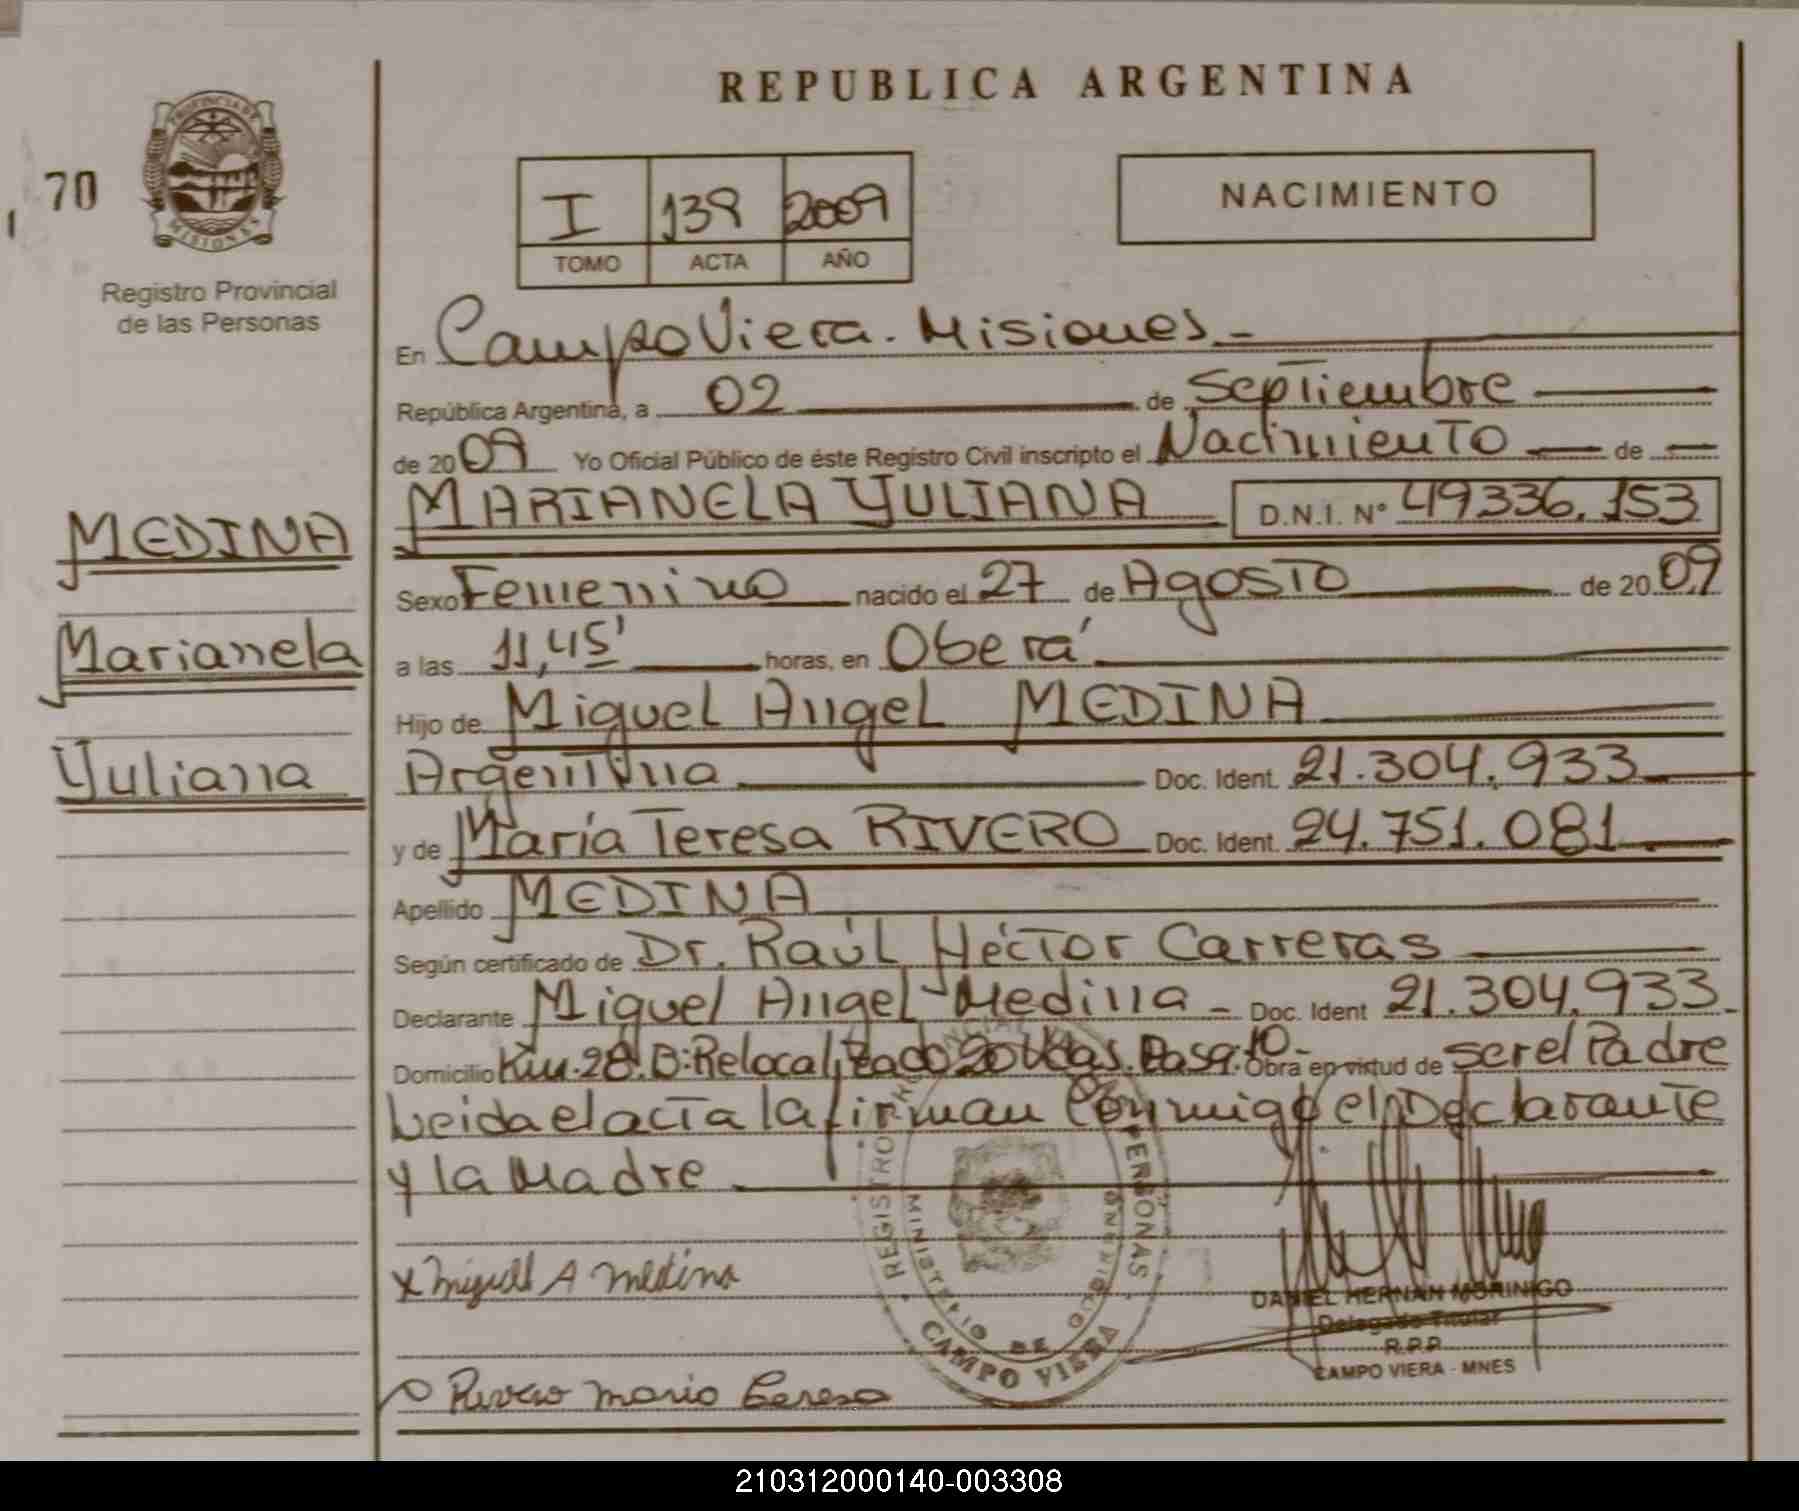 REPUBLICA ARGENTINA
70
PROVINCIA DE
MISIONES
Registro Provincial
de las Personas
I 139 2009
TOMO ACTA AÑO
NACIMIENTO
En Campo Viera. Misiones
República Argentina, a 02 de Septiembre
de 2009 Yo Oficial Público de éste Registro Civil inscripto el Nacimiento de
MARIANELA YULIANA D.N.I. Nº 49336.153
MEDINA
Marianela
Yuliana
Sexo Femenino nacido el 27 de Agosto de 2009
a las 11,45' horas, en Oberá
Hijo de Miguel Angel MEDINA
Argentina Doc. Ident. 21.304.933
y de María Teresa RIVERO Doc. Ident. 24.751.081
Apellido MEDINA
Según certificado de Dr. Raúl Héctor Carreras
Declarante Miguel Angel Medina - Doc. Ident 21.304.933
Domicilio Km.28.B:Relocalizado 20 Vdas. Obra en virtud de ser el Padre
Leida el acta la firman Conmigo el Declarante
y la Madre
x Miguel A Medina
Rivero Maria Teresa
REGISTRO PROVINCIAL DE LAS PERSONAS
MINISTERIO DE GOBIERNO
CAMPO VIERA
DANIEL HERNAN MORINIGO
Delegado Titular
R.P.P.
CAMPO VIERA - MNES
210312000140-003308